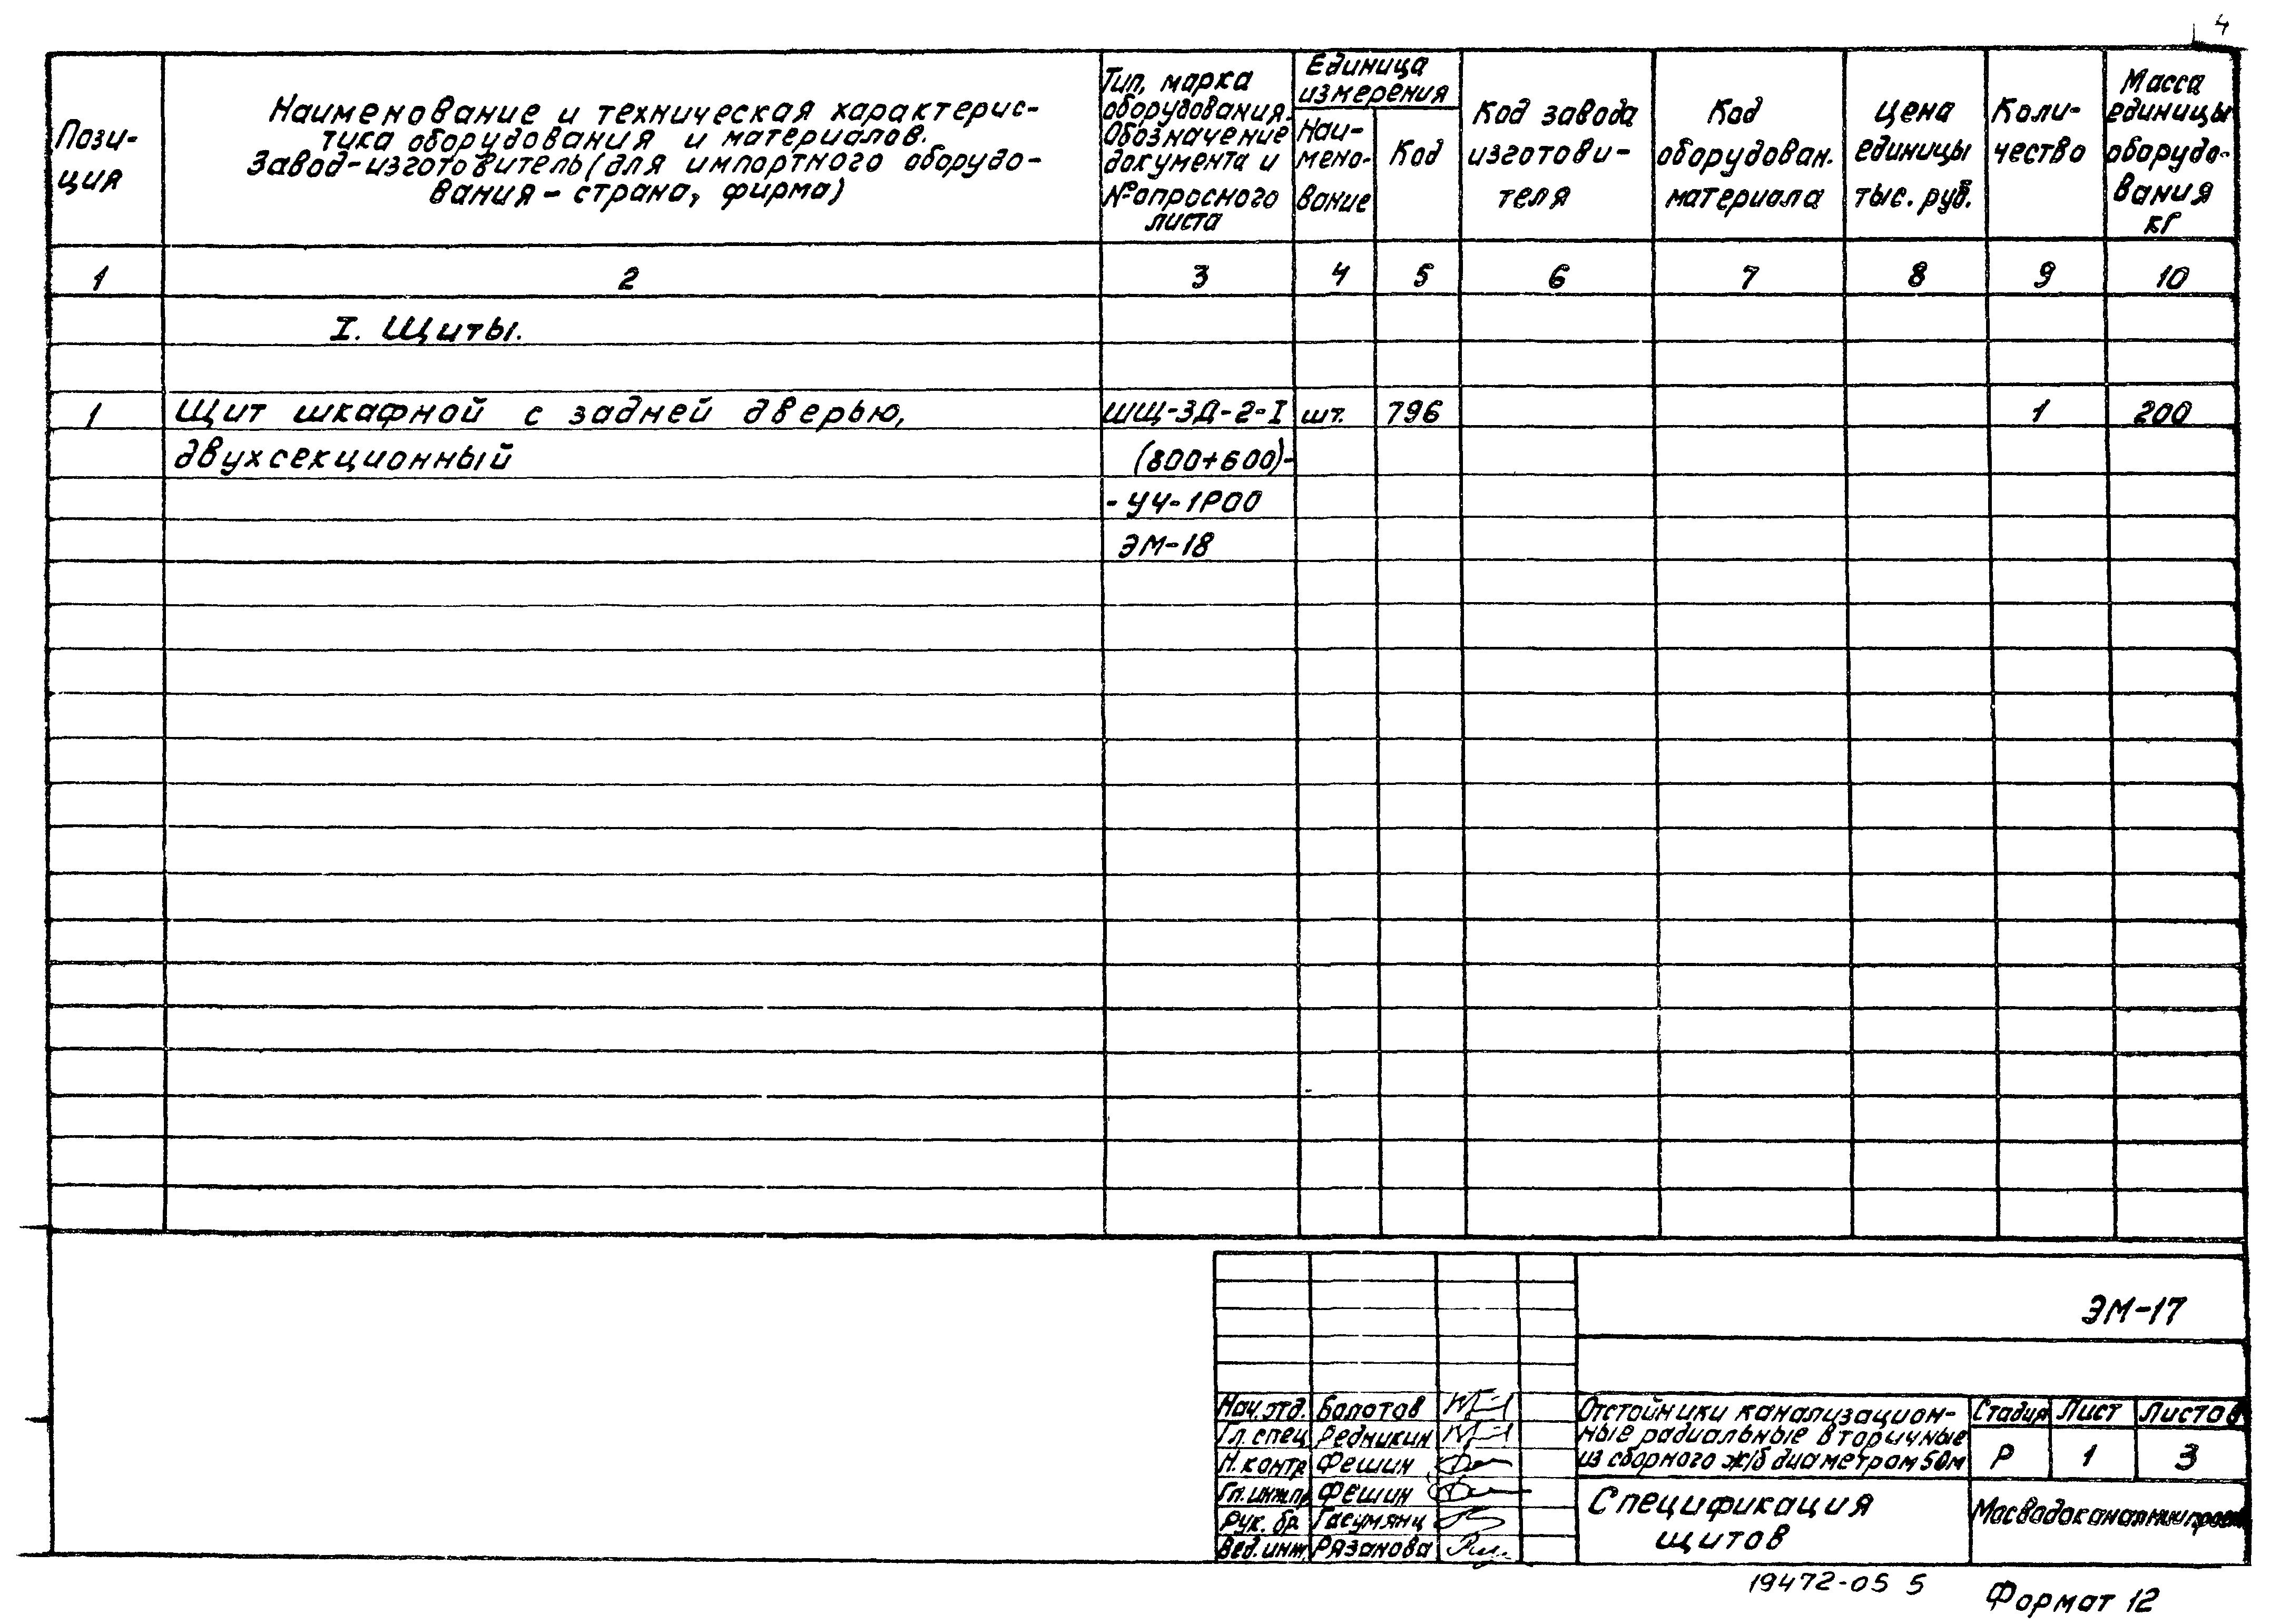 4
Пози-
ция
Наименование и техническая характерис-
тика оборудования и материалов.
Завод-изготовитель (для импортного оборудо-
вания - страна, фирма)
Тип, марка
оборудования.
Обозначение
документа и
№ опросного
листа
Единица
измерения
Наи-
мено-
вание
Код
Код завода
изготови-
теля
Код
оборудован.
материала
Цена
единицы
тыс. руб.
Коли-
чество
Масса
единицы
оборудо-
вания
кг
1 2 3 4 5 6 7 8 9 10
I. Щиты.
1 Щит шкафной с задней дверью, ШЩ-ЗД-2-I шт. 796 1 200
двухсекционный (800+600)-
-УЧ-1Р00
ЭМ-18
ЭМ-17
Нач. отд. Болотов
Гл. спец Редникин
Н. контр Фешин
Гл. инж.пр Фешин
Рук. бр Гасумянц
Вед. инж. Рязанова
Отстойники канализацион-
ные радиальные вторичные
из сборного ж/б диаметром 50м
Стадия Лист Листов
Р 1 3
Спецификация
щитов
Мосводоканалниипроект
19472-05 5
Формат 12